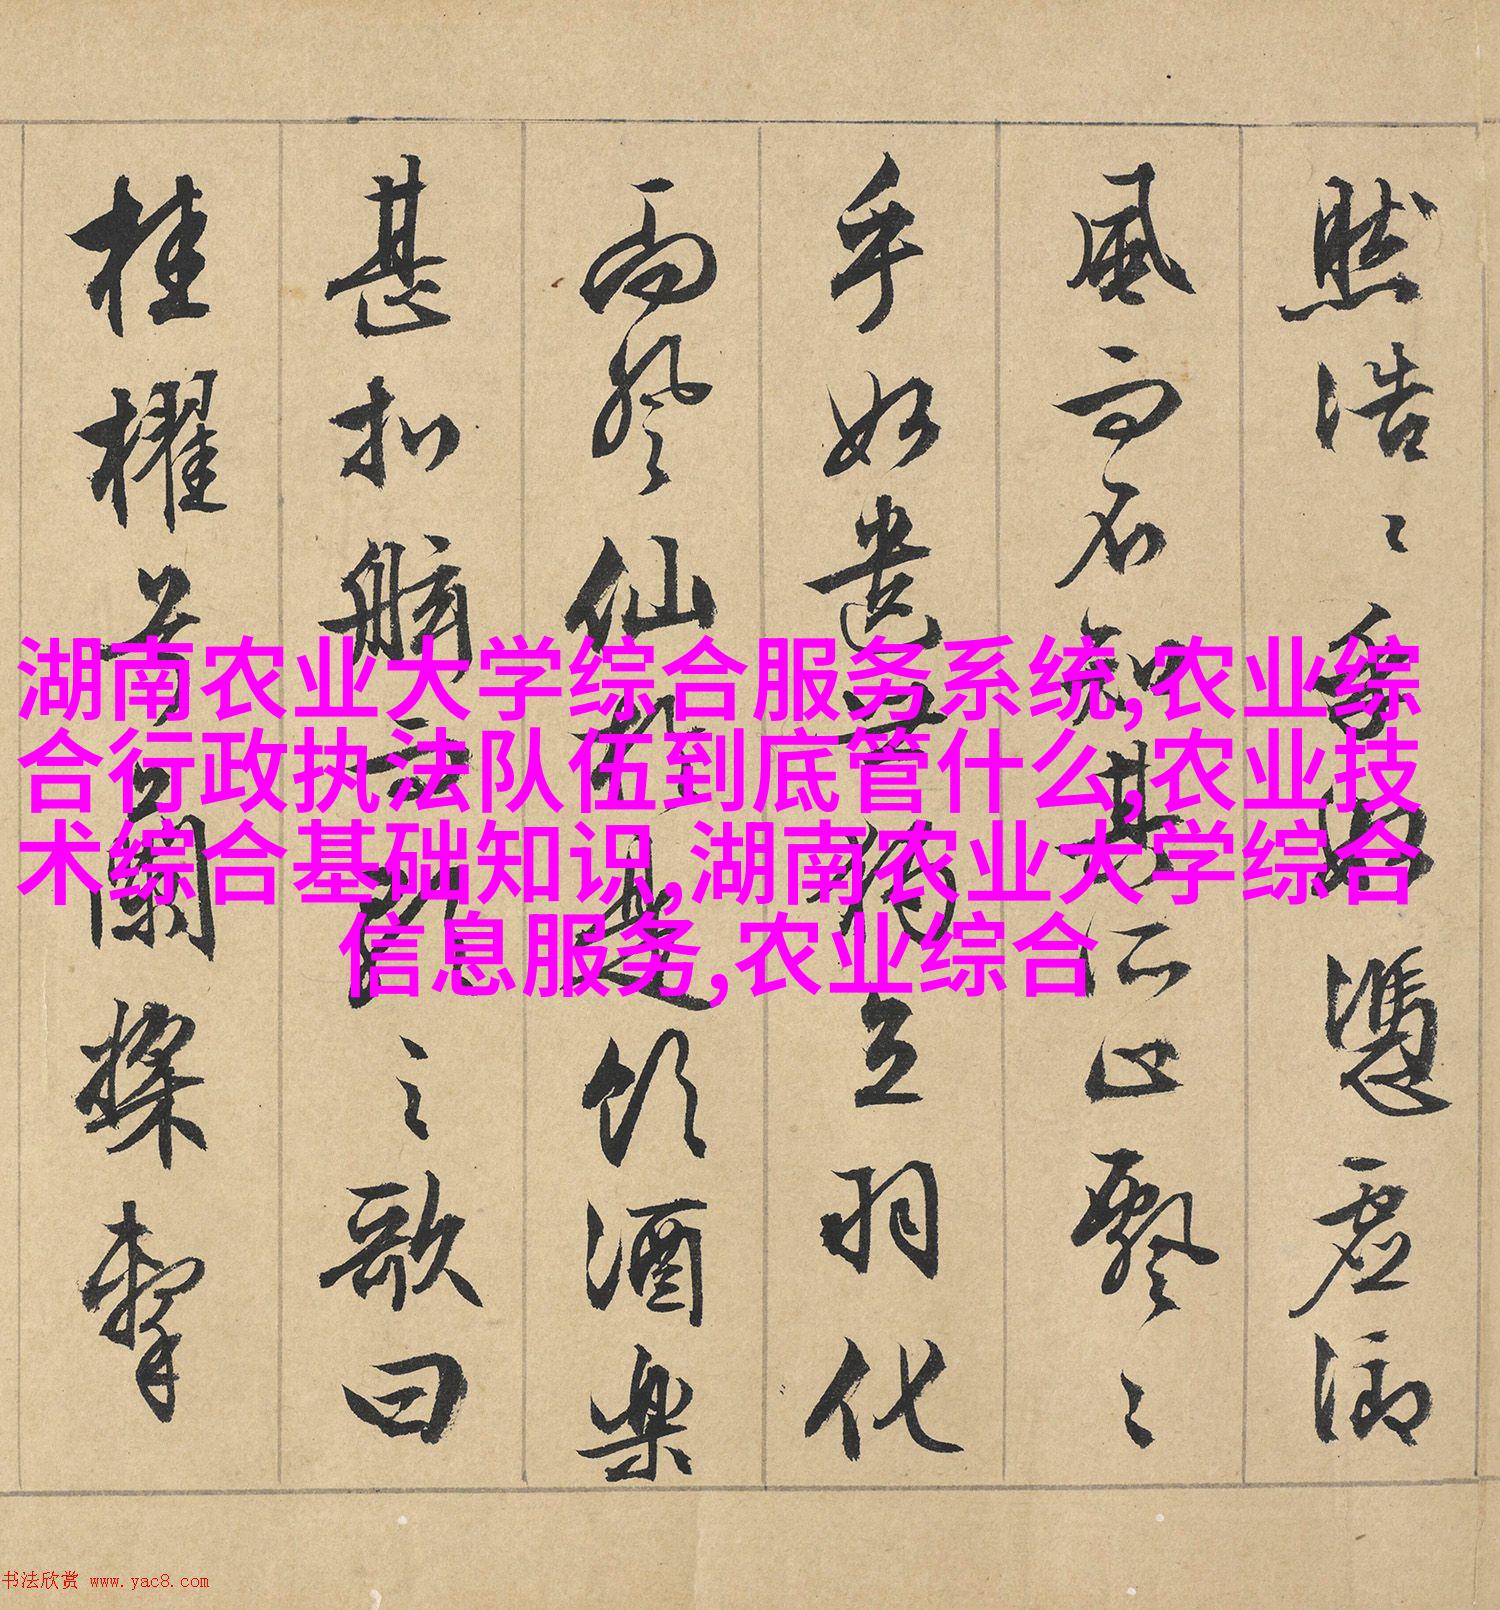 然浩〻乎如憑虛御
風而不知其所止飄〻
乎如遺世獨立羽化
而登仙於是飲酒樂
甚扣舷而歌之歌曰
桂櫂兮蘭槳擊
湖南农业大学综合服务系统,农业综
合行政执法队伍到底管什么,农业技
术综合基础知识,湖南农业大学综合
信息服务,农业综合
书法欣赏 www.yac8.com